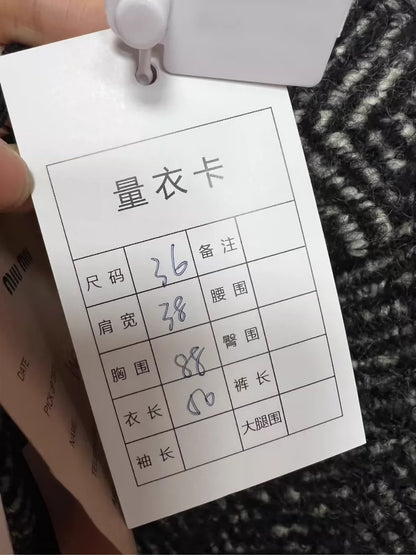 量衣卡
尺码 36 备注
肩宽 38 腰围
胸围 88 臀围
衣长 50 裤长
袖长 大腿围
MIU MIU
DATE
NAME